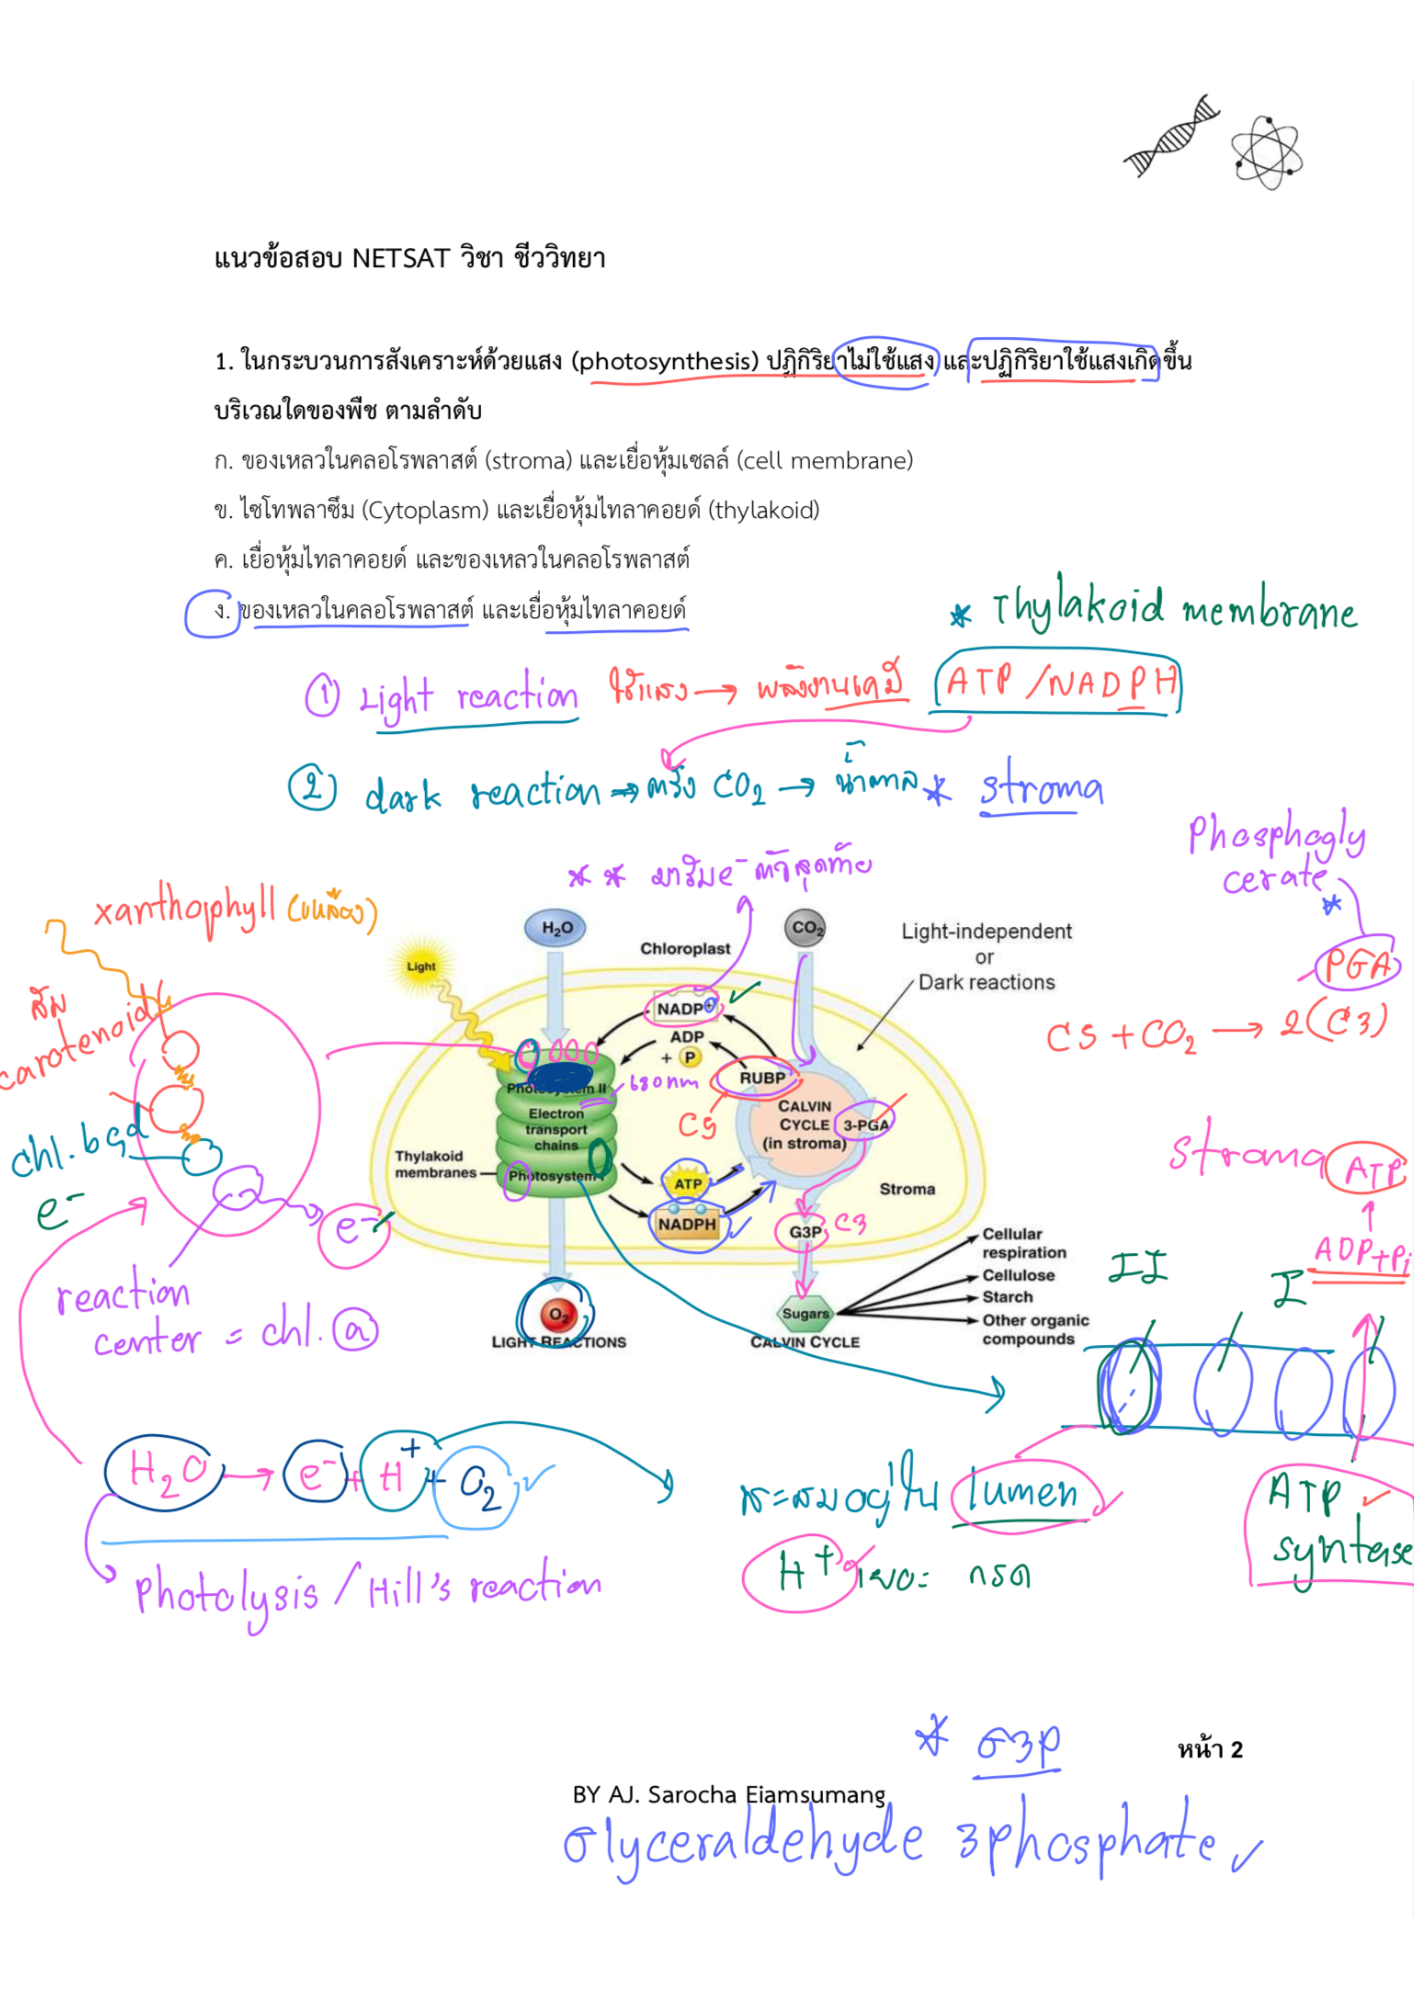 แนวข้อสอบ NETSAT วิชา ชีววิทยา
1. ในกระบวนการสังเคราะห์ด้วยแสง (photosynthesis) ปฏิกิริยาไม่ใช้แสง และปฏิกิริยาใช้แสงเกิดขึ้น
บริเวณใดของพืช ตามลำดับ
ก. ของเหลวในคลอโรพลาสต์ (stroma) และเยื่อหุ้มเซลล์ (cell membrane)
ข. ไซโทพลาซึม (Cytoplasm) และเยื่อหุ้มไทลาคอยด์ (thylakoid)
ค. เยื่อหุ้มไทลาคอยด์ และของเหลวในคลอโรพลาสต์
ง. ของเหลวในคลอโรพลาสต์ และเยื่อหุ้มไทลาคอยด์
* Thylakoid membrane
① Light reaction ใช้แสง → พลังงานเคมี ATP/NADPH
② dark reaction → ตรึง CO₂ → น้ำตาล * stroma
Phosphogly
cerate
*
PGA
C5 + CO₂ → 2(C3)
* * มารับ e⁻ ตัวสุดท้าย
xanthophyll (เหลือง)
ส้ม
carotenoid
chl. b
e⁻
e⁻
reaction
center = chl. a
H₂O
CO₂
Light
Chloroplast
Light-independent
or
Dark reactions
NADP⁺
ADP
+ P
RUBP
C5
Photosystem II
680nm
Electron
transport
chains
Thylakoid
membranes
Photosystem I
CALVIN
CYCLE
(in stroma)
3-PGA
ATP
NADPH
Stroma
G3P
C3
O₂
LIGHT REACTIONS
Sugars
CALVIN CYCLE
Cellular
respiration
Cellulose
Starch
Other organic
compounds
stroma ATP
ADP+Pi
II
I
H₂O → e⁻ + H⁺ + O₂
Photolysis / Hill's reaction
สะสมอยู่ใน lumen
H⁺ เยอะ กรด
ATP
syntase
* G3P
หน้า 2
BY AJ. Sarocha Eiamsumang
Glyceraldehyde 3phosphate